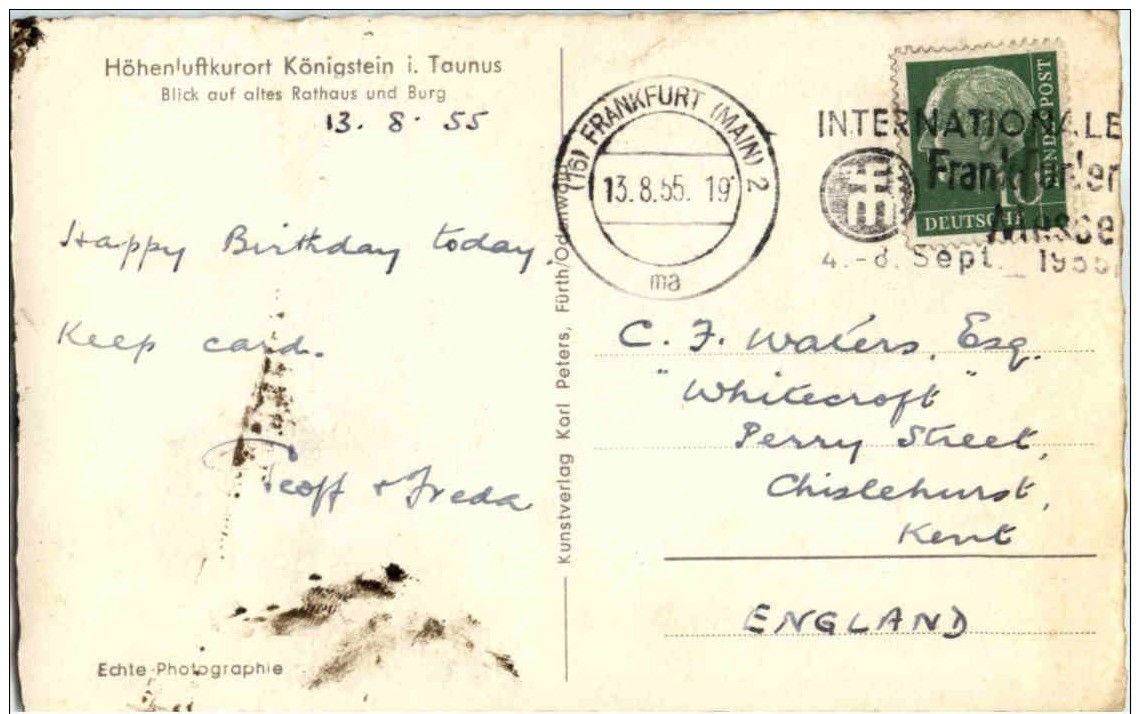 Höhenluftkurort Königstein i. Taunus
Blick auf altes Rathaus und Burg
13. 8. 55
Happy Birthday today.
Keep card.
Geoff + Freda
Echte Photographie
Kunstverlag Karl Peters, Fürth/Odenwald
(16) FRANKFURT (MAIN) 2
13.8.55. 19
ma
INTERNATIONALE
Frankfurter
Messe
4.-8. Sept. 1955
DEUTSCHE
BUNDESPOST
10
C. F. Waters, Esq.
"Whitecroft"
Perry Street,
Chislehurst,
Kent
ENGLAND